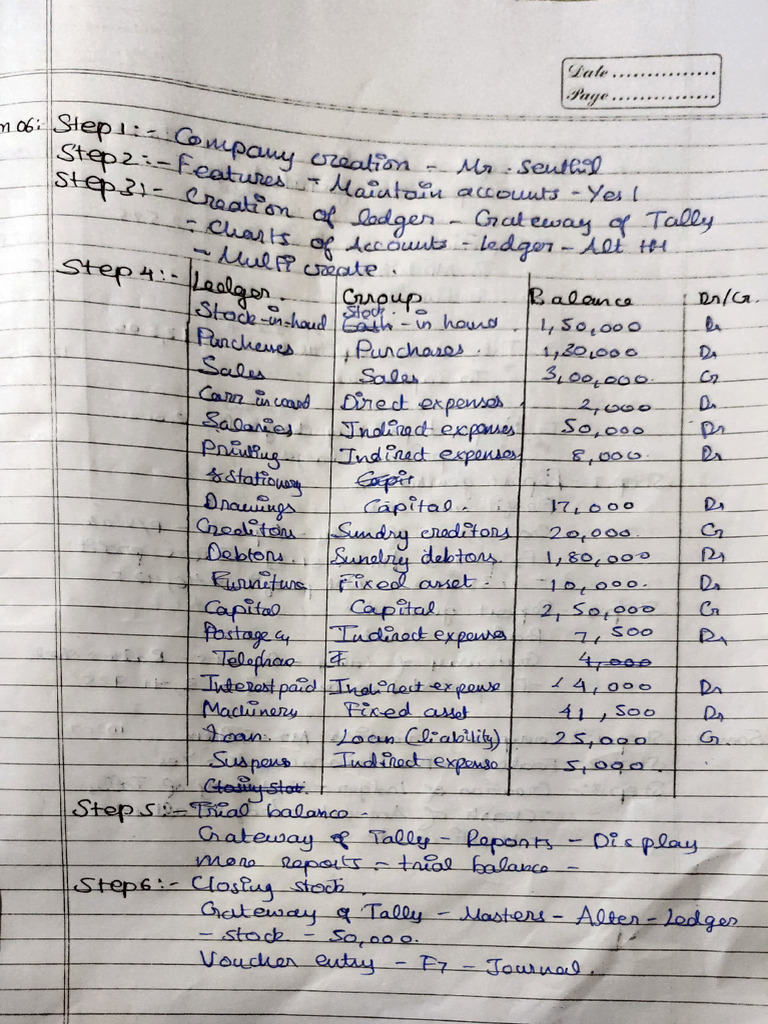 Date ...............
Page ...............
n 06: Step 1:- Company creation - Mr. Senthil
Step 2:- Features - Maintain accounts - Yes
Step 3:- Creation of ledger - Gateway of Tally
- Charts of Accounts - ledger - Alt + H
- Multi create.
Step 4:- Ledger. Group Balance Dr/Cr.
Stock-in-hand Stock Cash-in hand 1,50,000 Dr
Purchases Purchases. 1,30,000 Dr
Sales Sales 3,00,000. Cr
Carr inward Direct expenses 2,000 Dr
Salaries Indirect expenses 50,000 Dr
Printing Indirect expenses 8,000. Dr
& Stationary Capit
Drawings Capital. 17,000 Dr
Creditors Sundry creditors 20,000. Cr
Debtors. Sundry debtors. 1,80,000 Dr
Furniture Fixed asset. 10,000. Dr
Capital Capital 2,50,000 Cr
Postage & Indirect expenses 7,500 Dr
Telephone 4,000
Interest paid Indirect expense 4,000 Dr
Machinery Fixed asset 41,500 Dr
Loan Loan (liability) 25,000 Cr
Suspens Indirect expense 5,000.
Closing Stoc.
Step 5:- Trial balance.
Gateway of Tally - Reports - Display
more reports - trial balance -
Step 6:- Closing stock.
Gateway of Tally - Masters - Alter - Ledger
- Stock - 50,000.
Voucher entry - F7 - Journal.